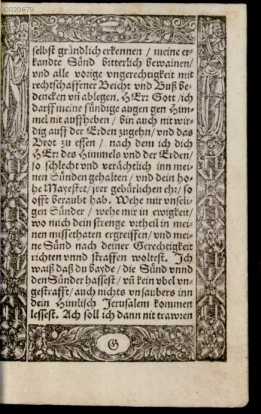 selbst gründlich erkennen / meine er-
kandte Sünd bitterlich bewainen/
vnd alle vorige vngerechtigkeit mit
rechtschaffener Beicht vnd Buß be-
dencken vñ ablegen. HErr Gott / ich
darff meine sündige augen gen Him-
mel nit auffheben / bin auch nit wir-
dig auff der Erden zugehn / vnd das
Brot zu essen / nach dem ich dich
HErr des Himmels vnd der Erden/
so schlecht vnd verächtlich inn mei-
nen Sünden gehalten / vnd dein ho-
he Mayestet / jrer gebürlichen ehr / so
offt beraubt hab. Wehe mir vnseli-
gen Sünder / wehe mir in ewigkeit/
wo mich dein strenge vrtheil in mei-
nen missethaten ergreiffen / vnd mei-
ne Sünd nach deiner Gerechtigkeit
richten vnnd straffen woltest. Ich
waiß daß du bayde / die Sünd vnnd
den Sünder hassest / vñ kein vbel vn-
gestrafft / auch nichts vnsaubers inn
dein Himlisch Jerusalem kommen
lessest. Ach soll ich dann nit trawren
G